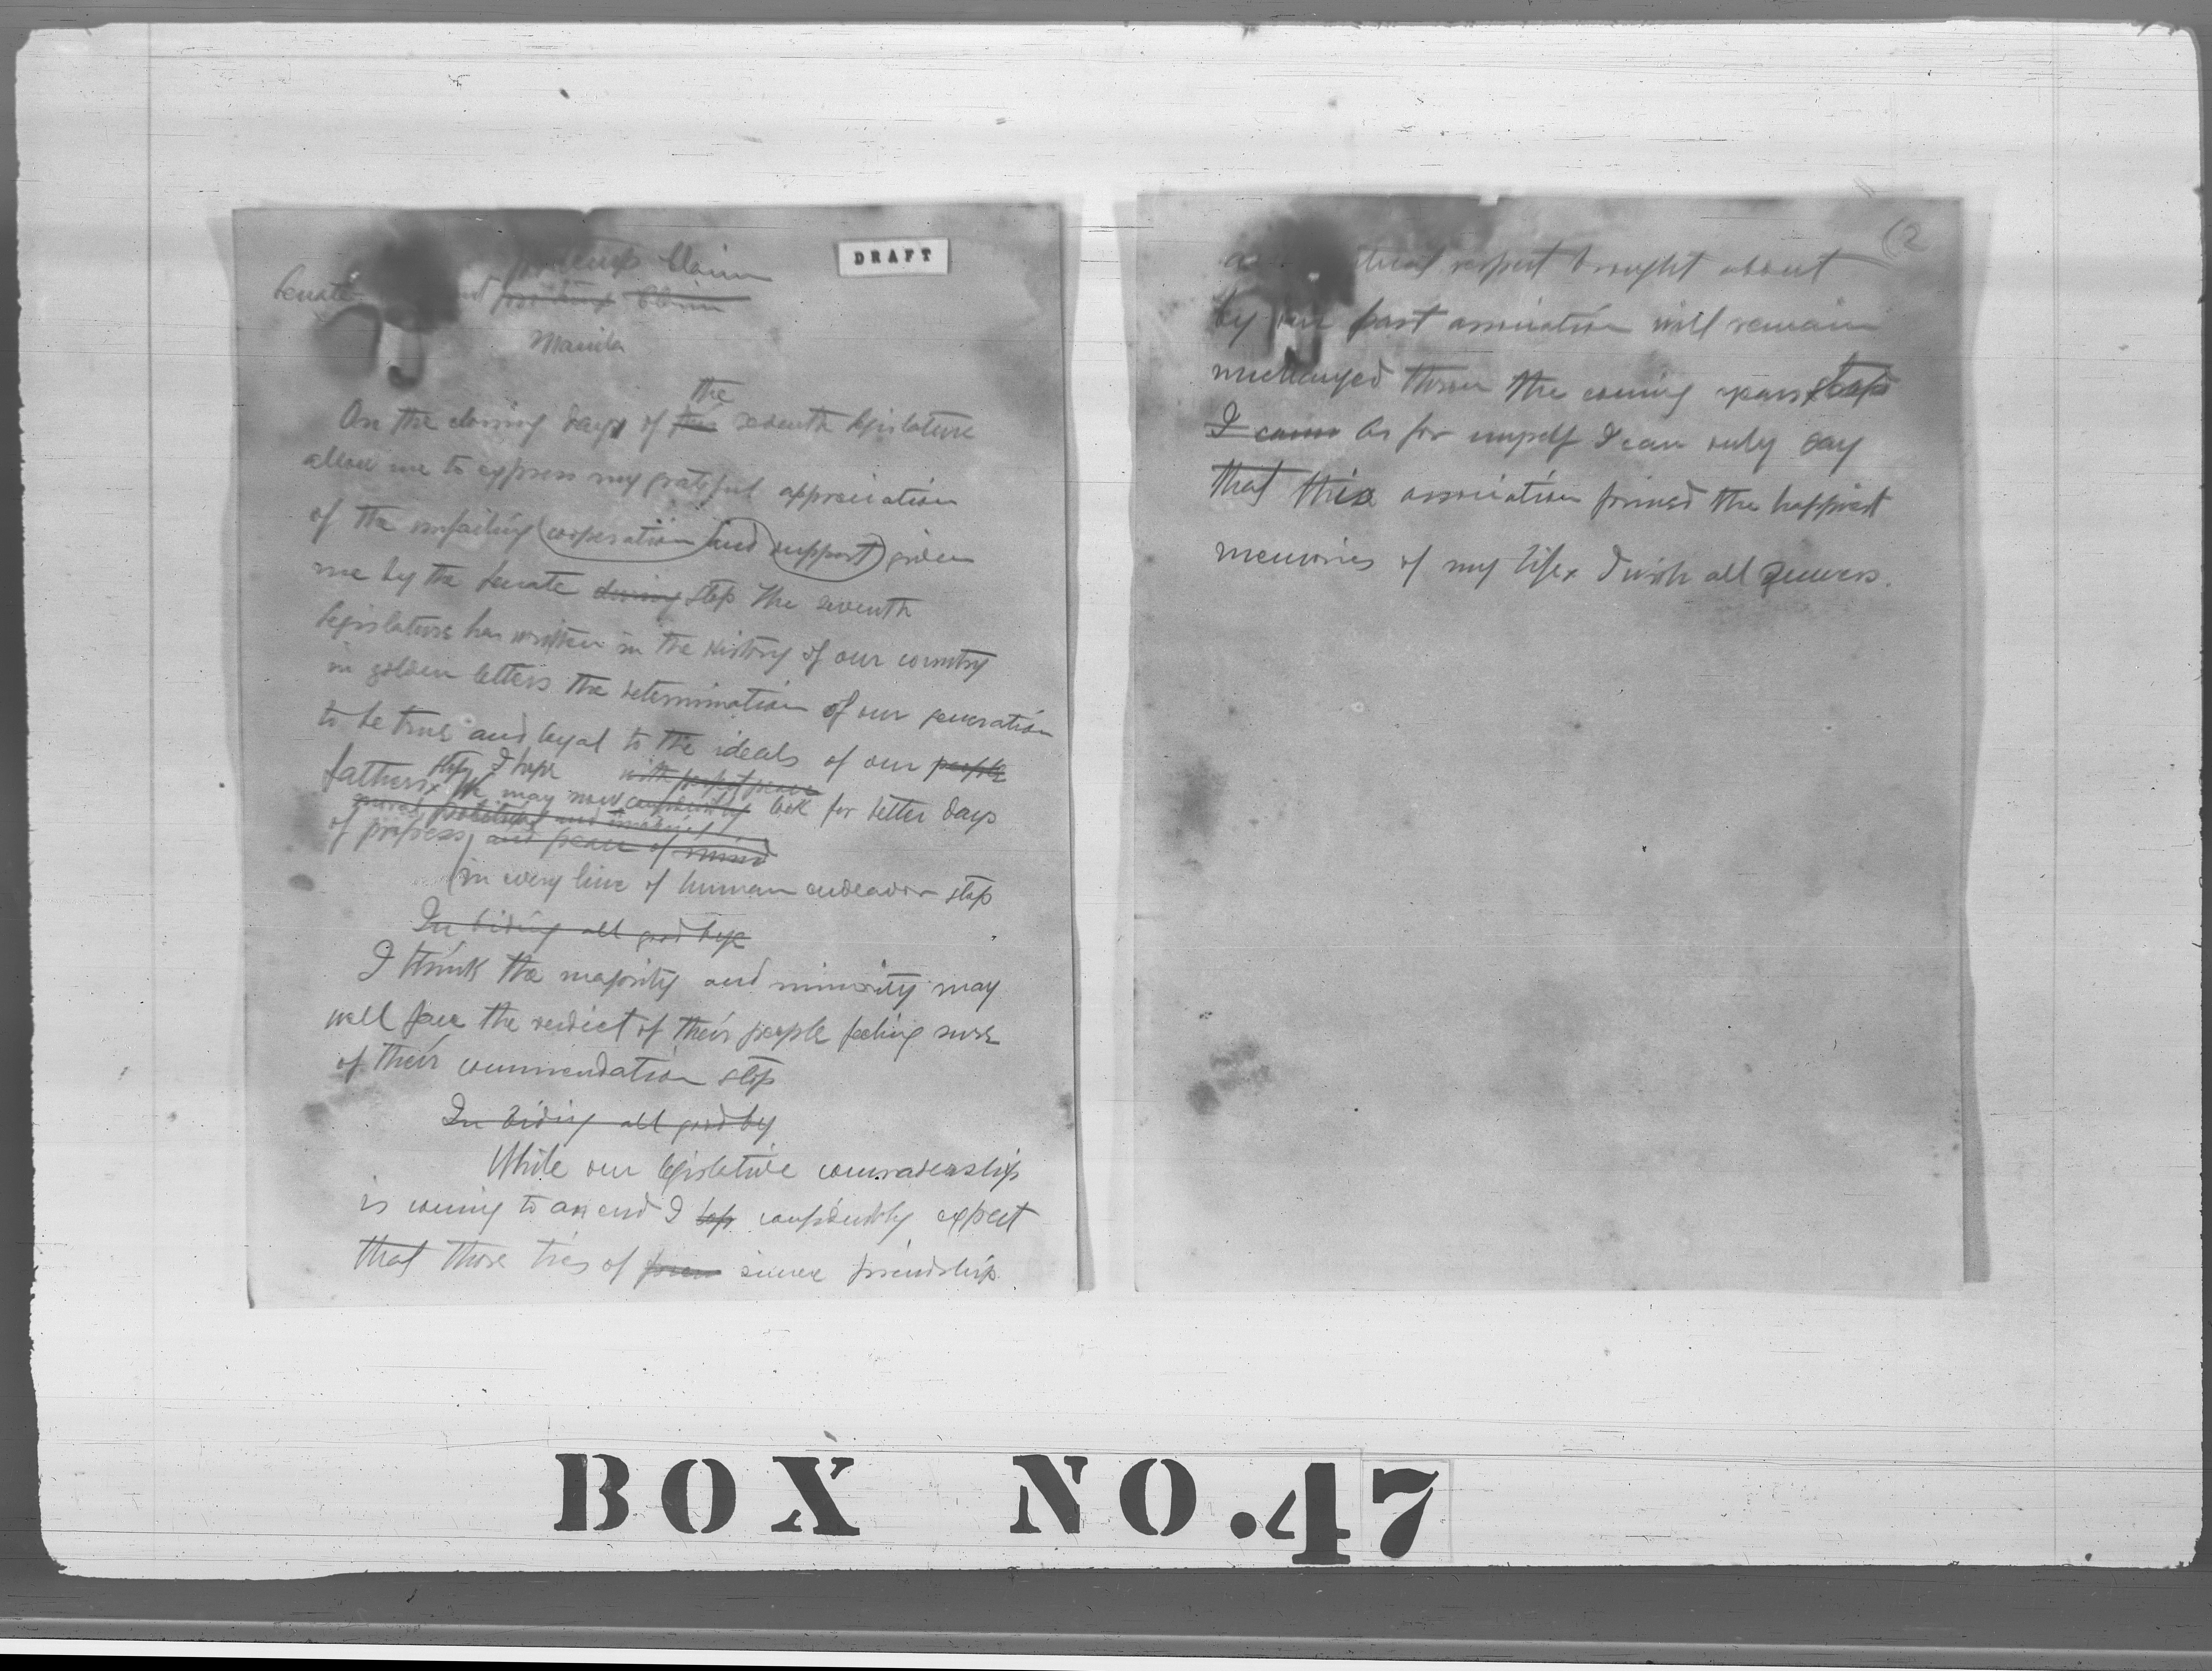 DRAFT
Senate
Manila
the
On the closing days of this seventh legislature
allow me to express my grateful appreciation
of the unfailing (cooperation) and (support) given
me by the Senate during stop The seventh
legislature has written in the history of our country
in golden letters the determination of our generation
to be true and loyal to the ideals of our people
stop I hope with perfect peace
fathers x We may now confidently look for better days
of progress, and peace of mind
in every line of human endeavor stop
In biding all good bye
I think the majority and minority may
well face the verdict of their people feeling sure
of their commendation stop
In biding all good by
While our legislative comradership
is coming to an end I confidently expect
that those ties of sincere friendship
(2
respect brought about
by our past association will remain
unchanged thru the coming years stop
I As for myself I can only say
that this association formed the happiest
memories of my life x I wish all
BOX NO.47